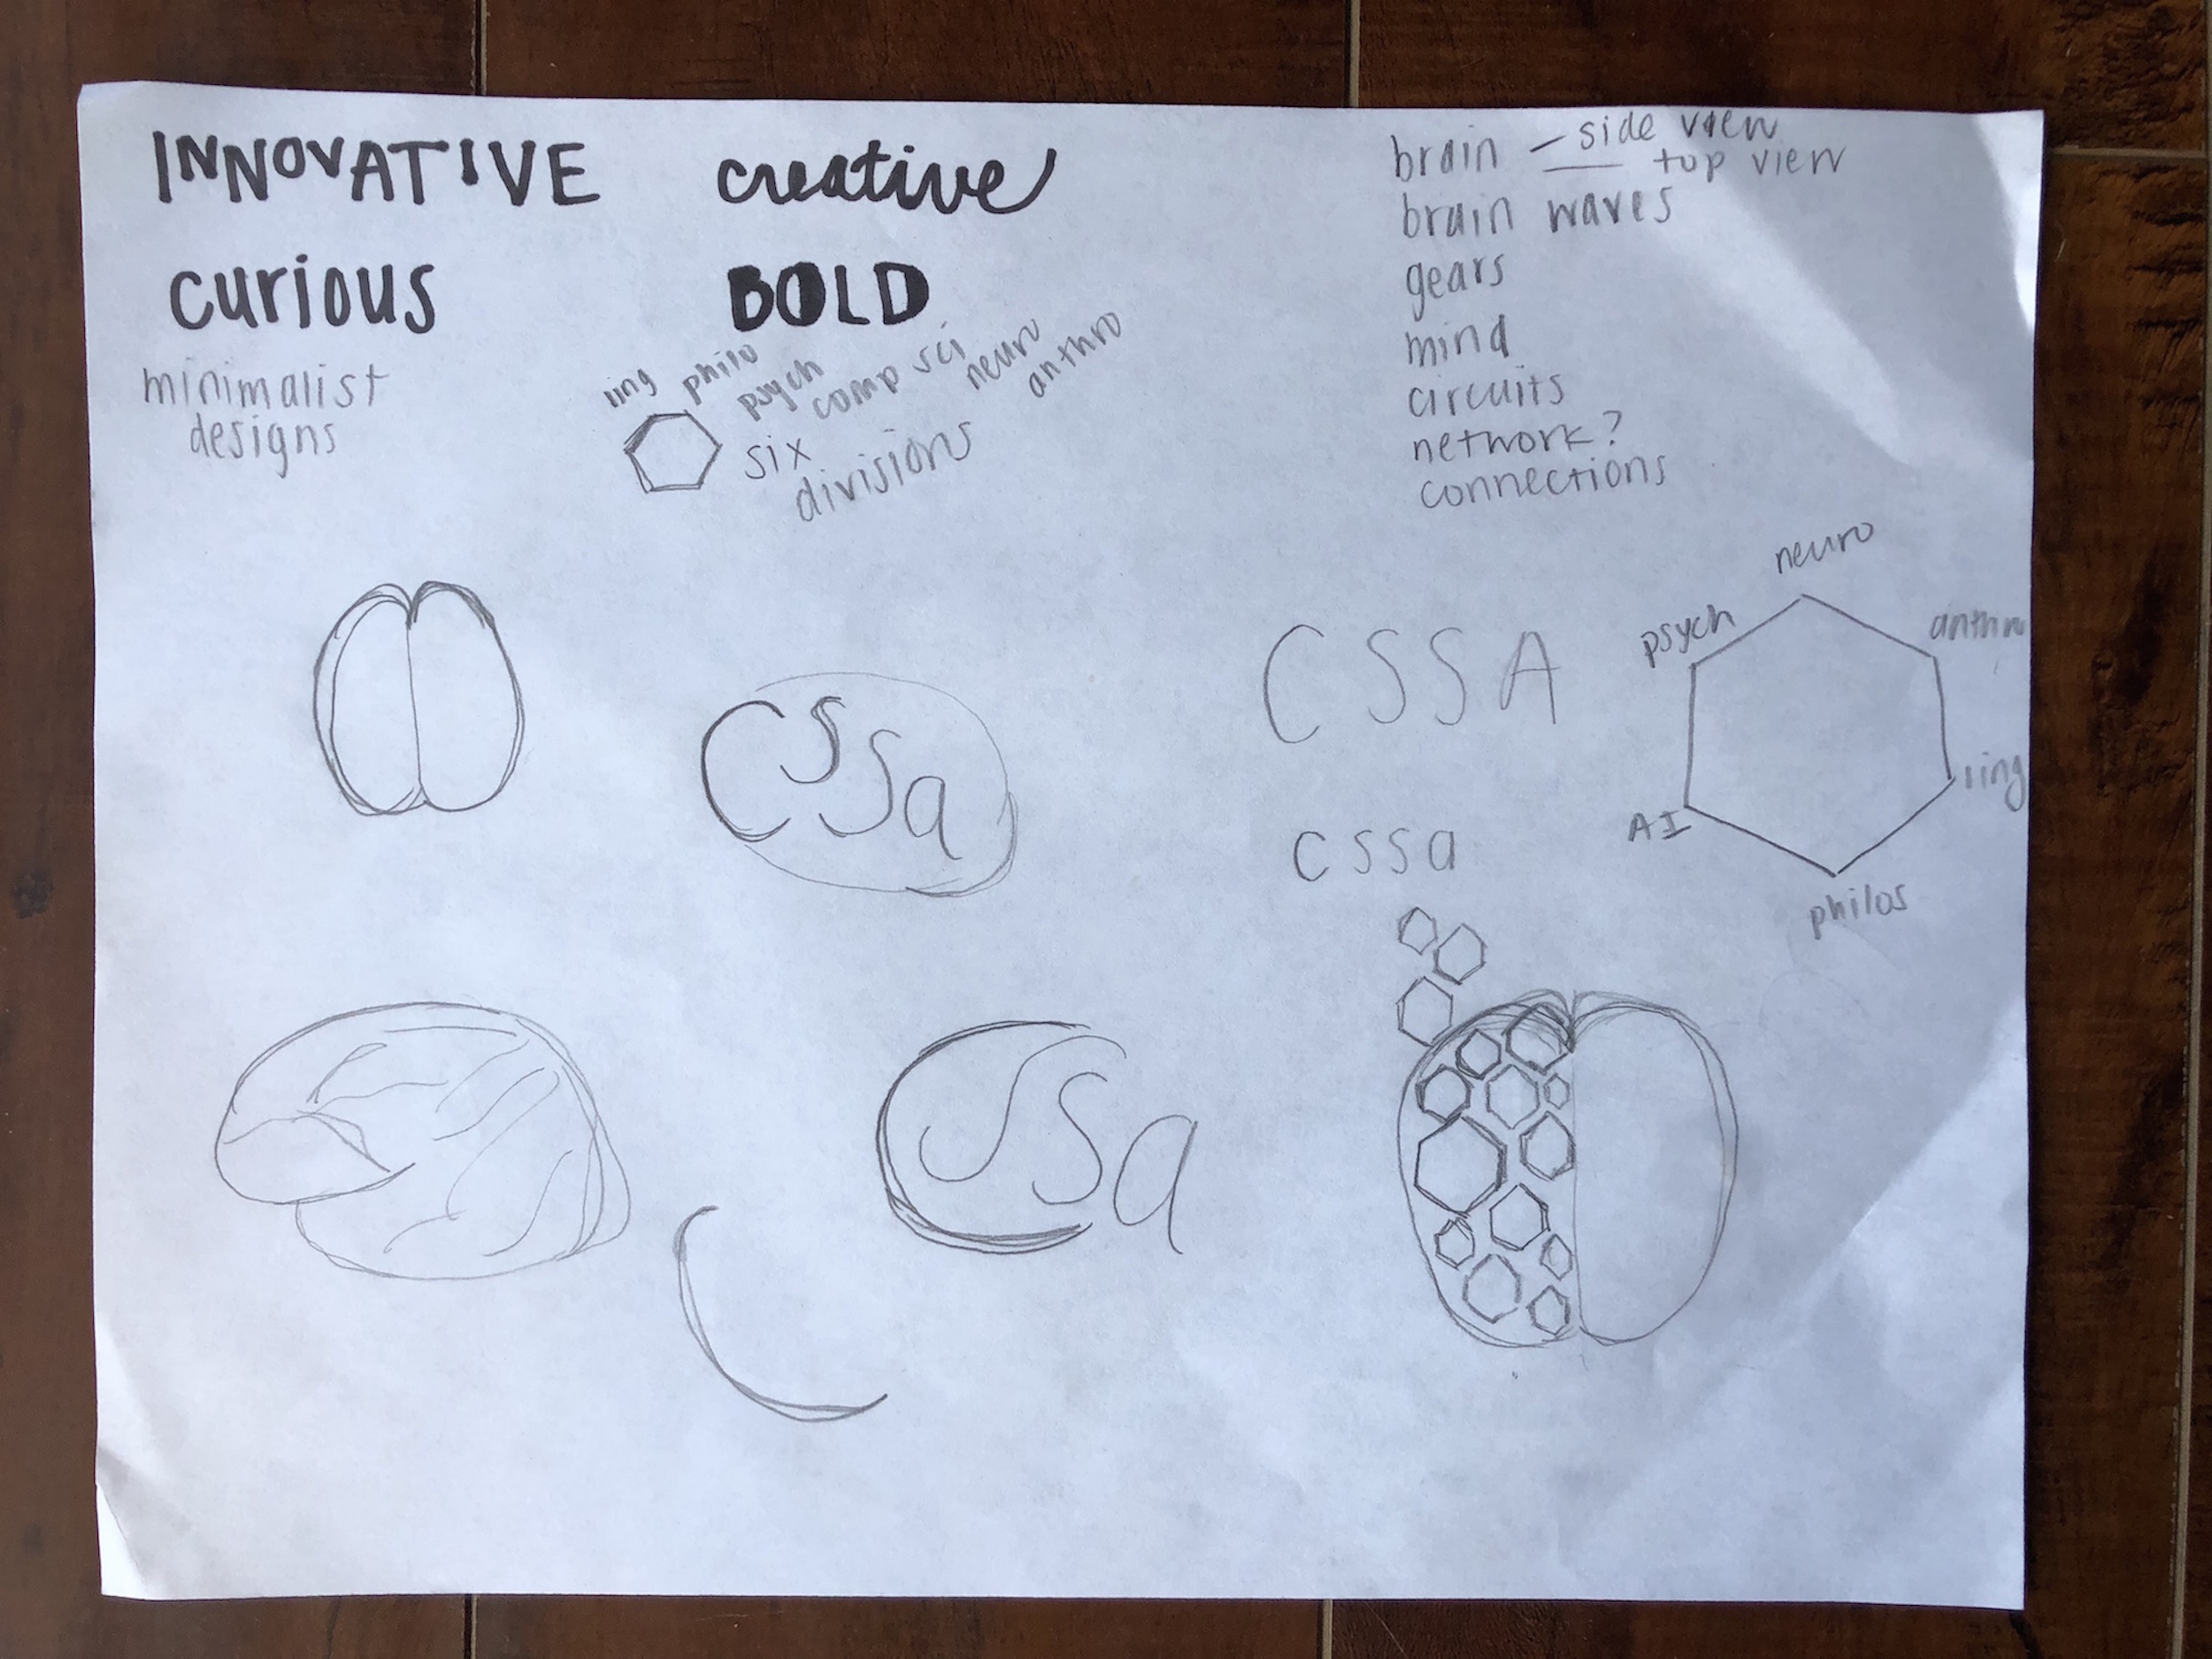 INNOVATIVE creative
curious BOLD
minimalist
designs
ling philo psych comp sci neuro anthro
six
divisions
brain - side view
top view
brain waves
gears
mind
circuits
network?
connections
CSSa
CSSA
cssa
neuro
psych
anthro
ling
AI
philos
CSSa